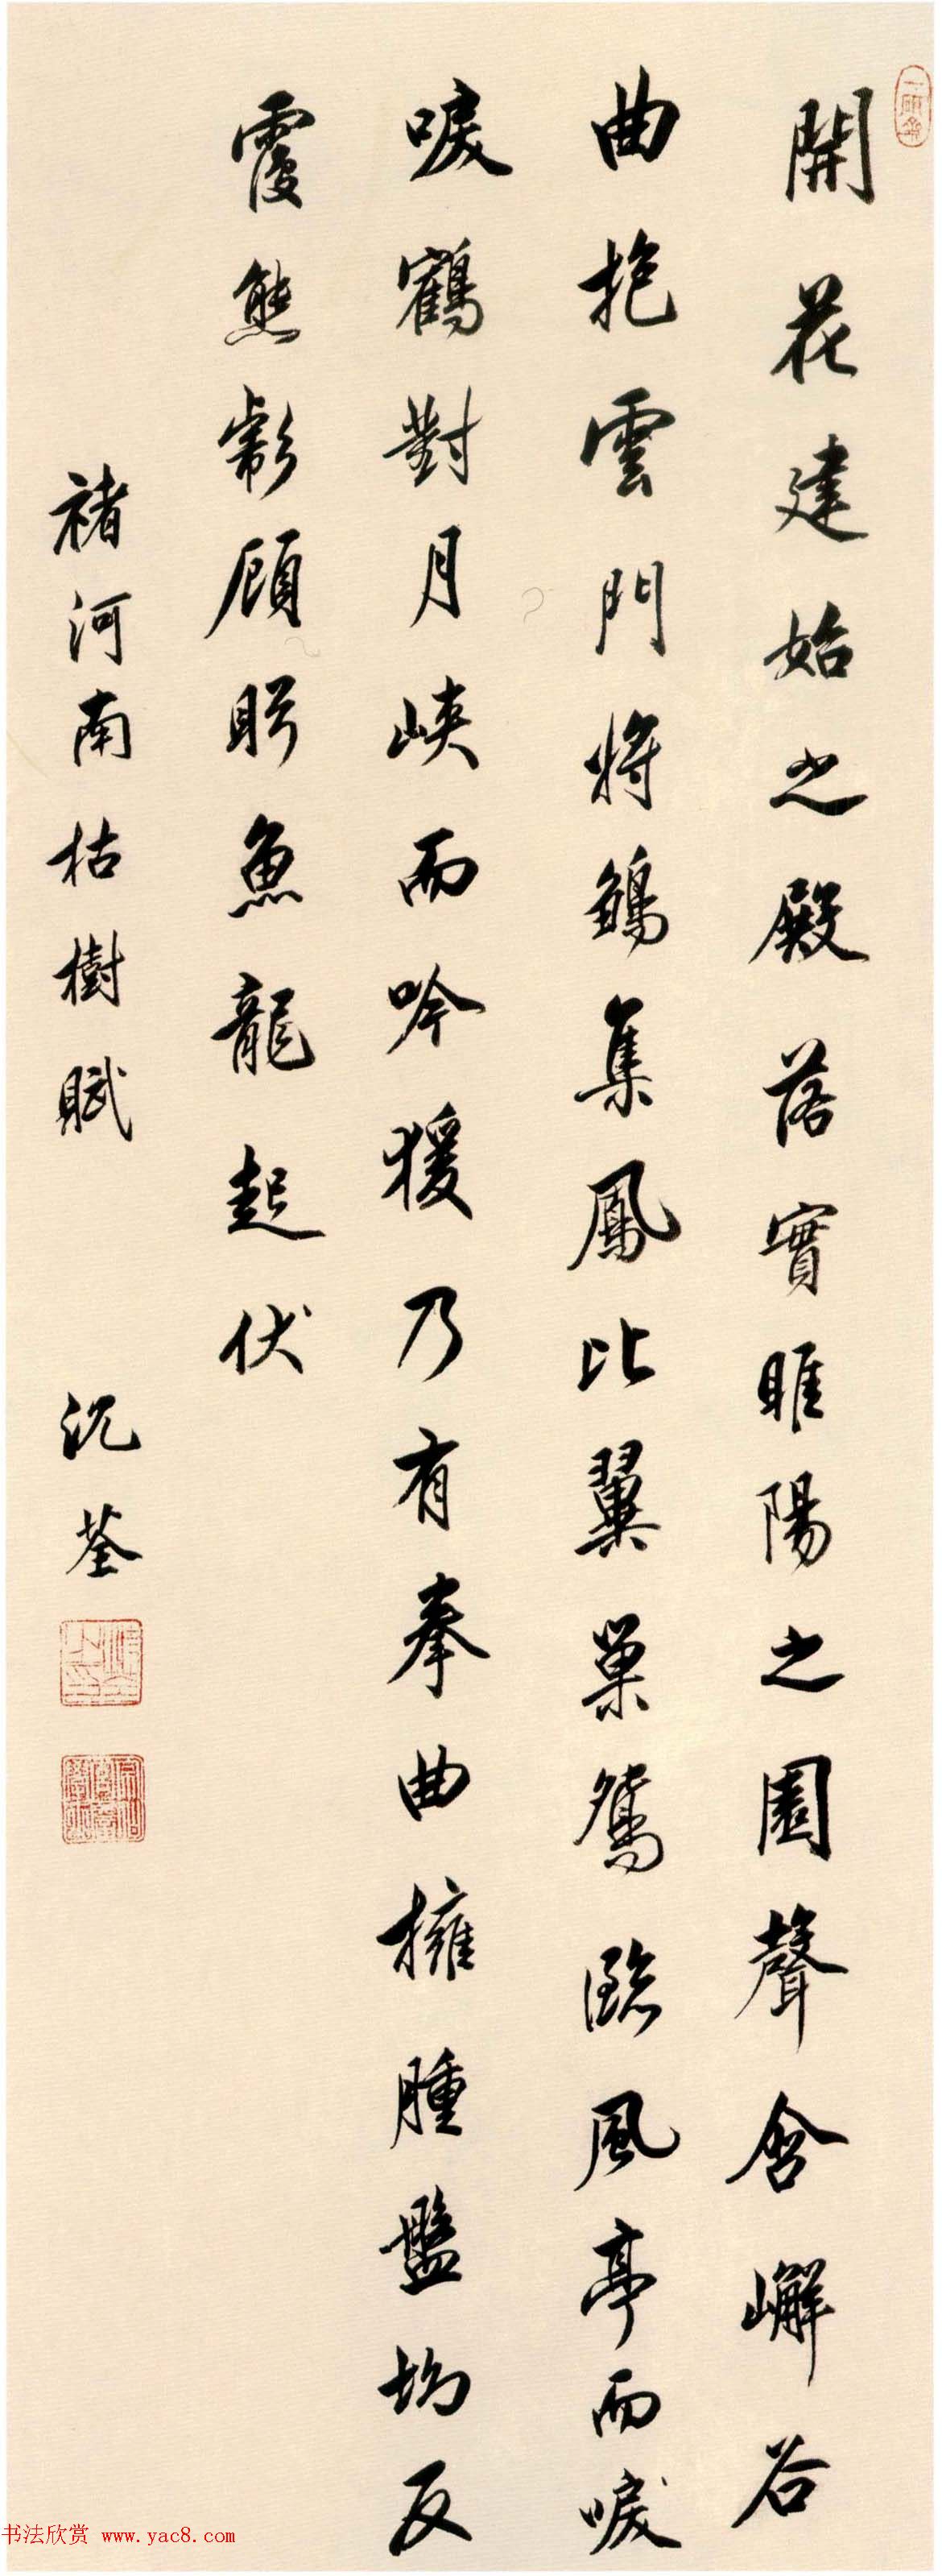 開花建始之殿落實睢陽之園聲含嶰谷
曲抱雲門將鶵集鳳比翼巢鴛臨風亭而唳
唳鶴對月峽而吟猨乃有拳曲擁腫盤坳反
覆熊彪顧盼魚龍起伏
褚河南枯樹賦 沈荃
书法欣赏 www.yac8.com